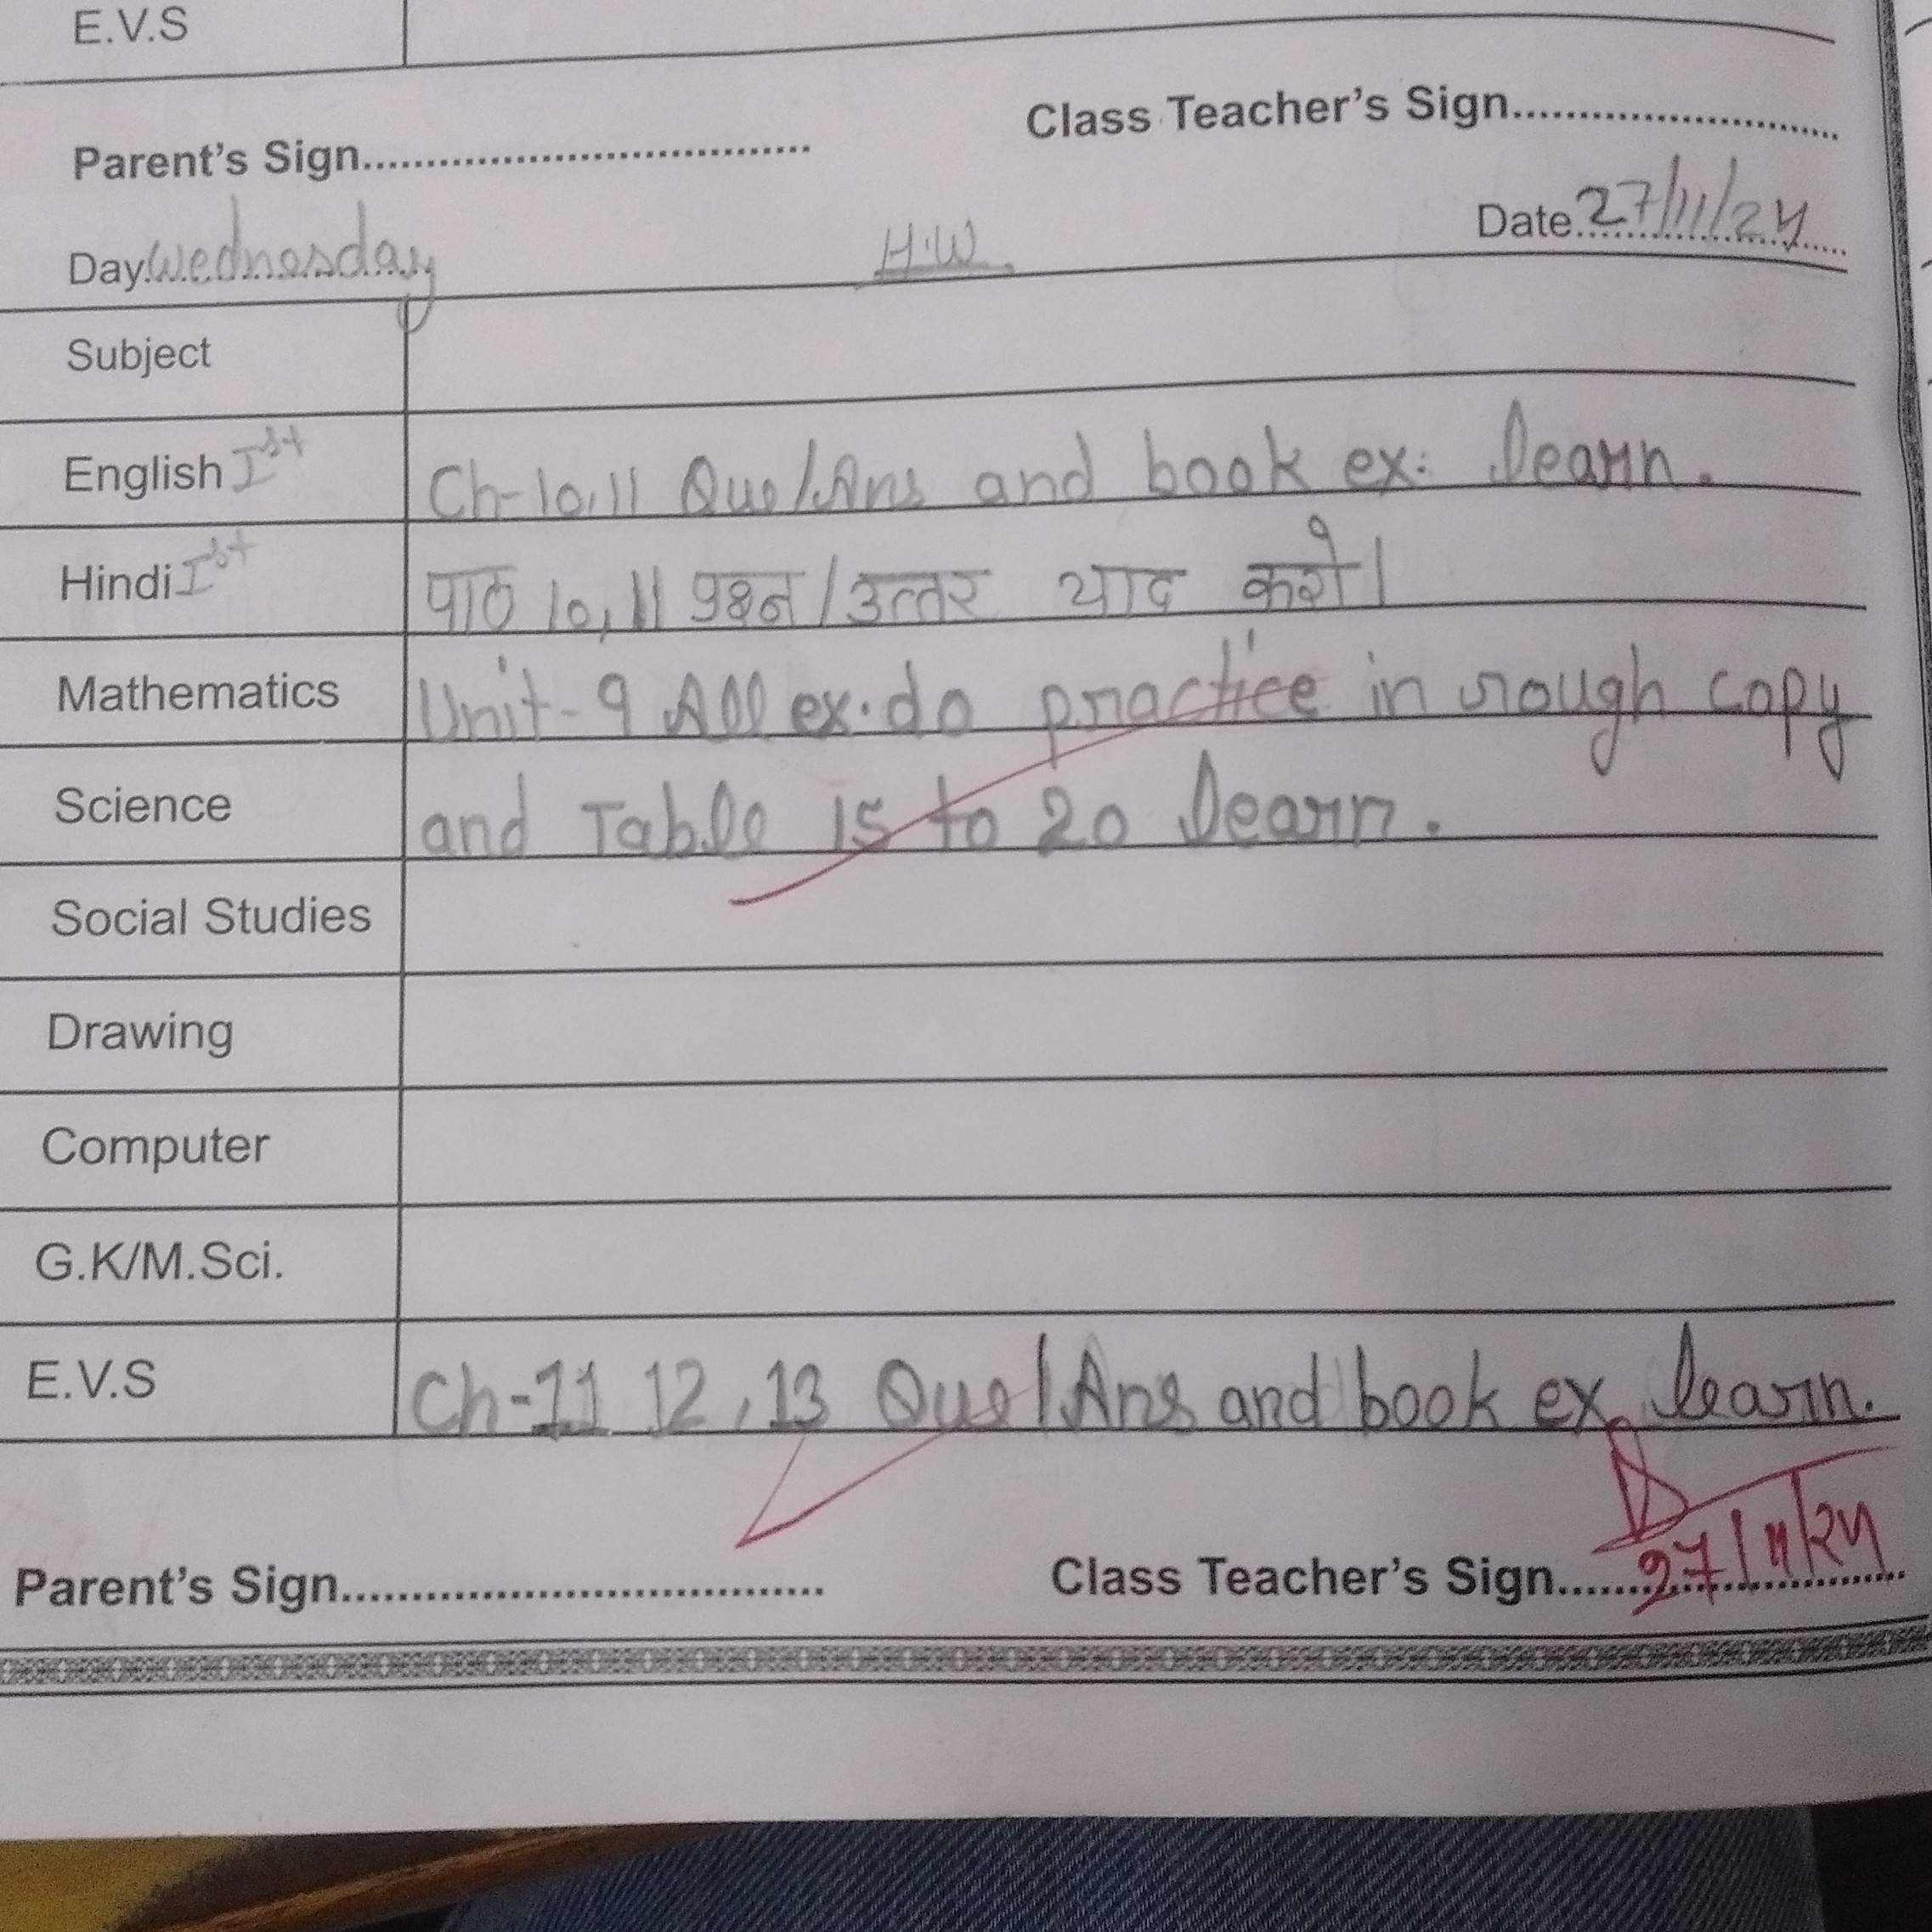 E.V.S
Class Teacher's Sign
Parent's Sign
Date 27/11/24
Day Wednesday H.W.
Subject
English Ist Ch-10,11 Que/Ans and book ex. learn.
Hindi Ist पाठ 10,11 प्रश्न/उत्तर याद करो।
Mathematics Unit-9 All ex. do practice in rough copy
Science and Table 15 to 20 learn.
Social Studies
Drawing
Computer
G.K/M.Sci.
E.V.S Ch-11 12,13 Que/Ans and book ex learn.
Parent's Sign Class Teacher's Sign 27/11/24